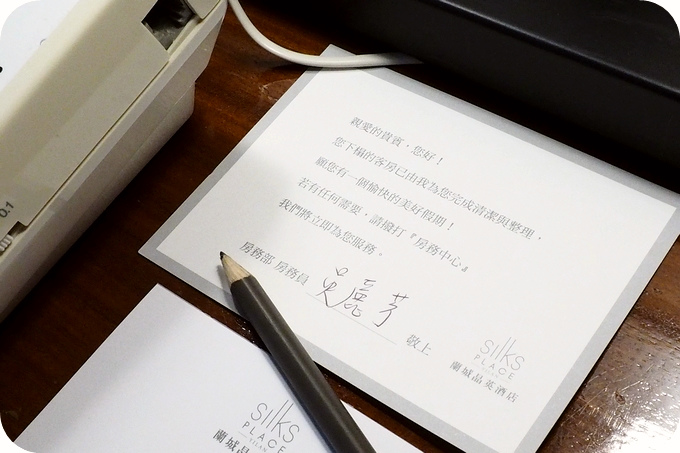 親愛的貴賓，您好！
您下榻的客房已由我為您完成清潔與整理，
願您有一個愉快的美好假期！
若有任何需要，請撥打『房務中心』
我們將立即為您服務。
房務部 房務員 吳麗芽 敬上
silks
PLACE
YILAN
蘭城晶英酒店
silks
PLACE
YILAN
蘭城晶
0.1